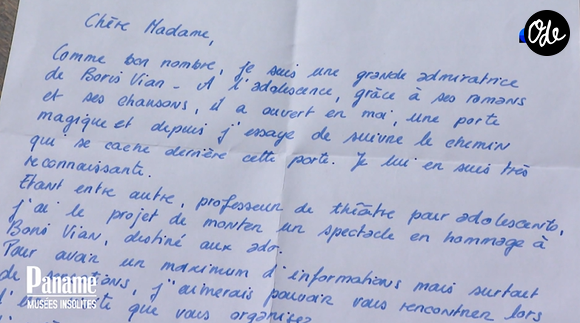 Ode
Chère Madame,
Comme bon nombre, je suis une grande admiratrice
de Boris Vian - A l'adolescence, grâce à ses romans
et ses chansons, il a ouvert en moi, une porte
magique et depuis j'essaye de suivre le chemin
qui se cache derrière cette porte. Je lui en suis très
reconnaissante.
Etant entre autre, professeur de théâtre pour adolescents,
j'ai le projet de monter un spectacle en hommage à
Boris Vian, destiné aux ados.
Pour avoir un maximum d'informations mais surtout
de sensations, j'aimerais pouvoir vous rencontrer lors
que vous organisez
Paname
MUSÉES INSOLITES